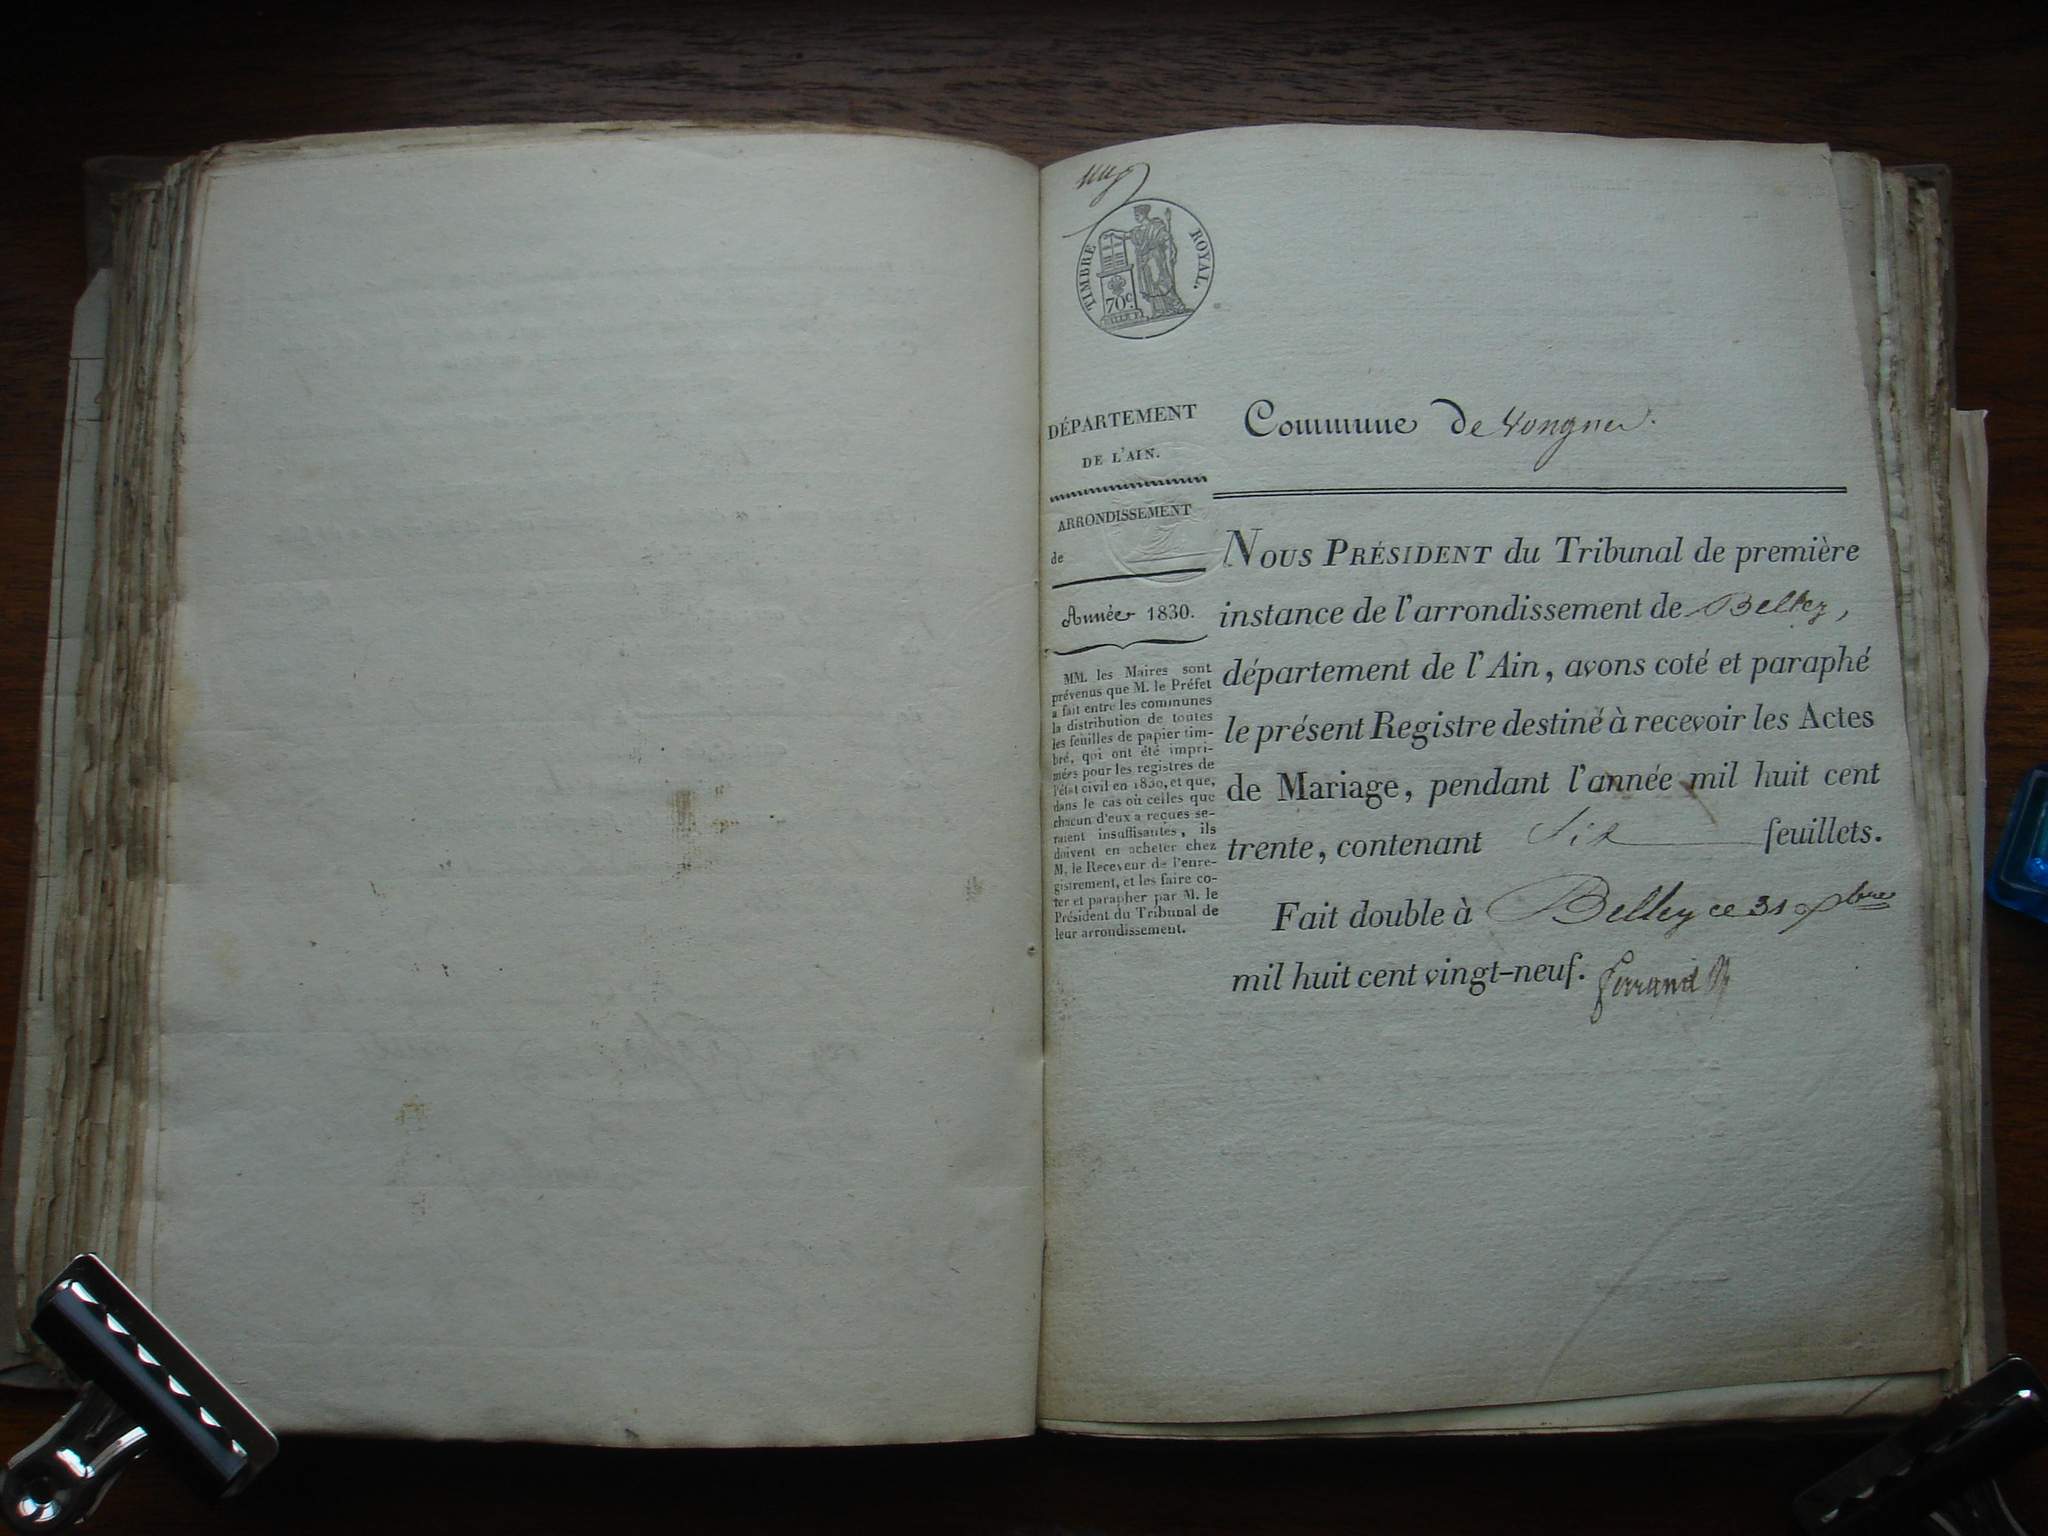 TIMBRE ROYAL.
70c.
DÉPARTEMENT
DE L'AIN.
ARRONDISSEMENT
de
Année 1830.
MM. les Maires sont
prévenus que M. le Préfet
a fait entre les communes
la distribution de toutes
les feuilles de papier tim-
bré, qui ont été impri-
més pour les registres de
l'état civil en 1830, et que,
dans le cas où celles que
chacun d'eux a reçues se-
raient insuffisantes, ils
doivent en acheter chez
M. le Receveur de l'enre-
gistrement, et les faire co-
ter et parapher par M. le
Président du Tribunal de
leur arrondissement.
Commune de Vongnes.
NOUS PRÉSIDENT du Tribunal de première
instance de l'arrondissement de Belley,
département de l'Ain, avons coté et paraphé
le présent Registre destiné à recevoir les Actes
de Mariage, pendant l'année mil huit cent
trente, contenant Six feuillets.
Fait double à Belley ce 31 Xbre
mil huit cent vingt-neuf. Ferrand